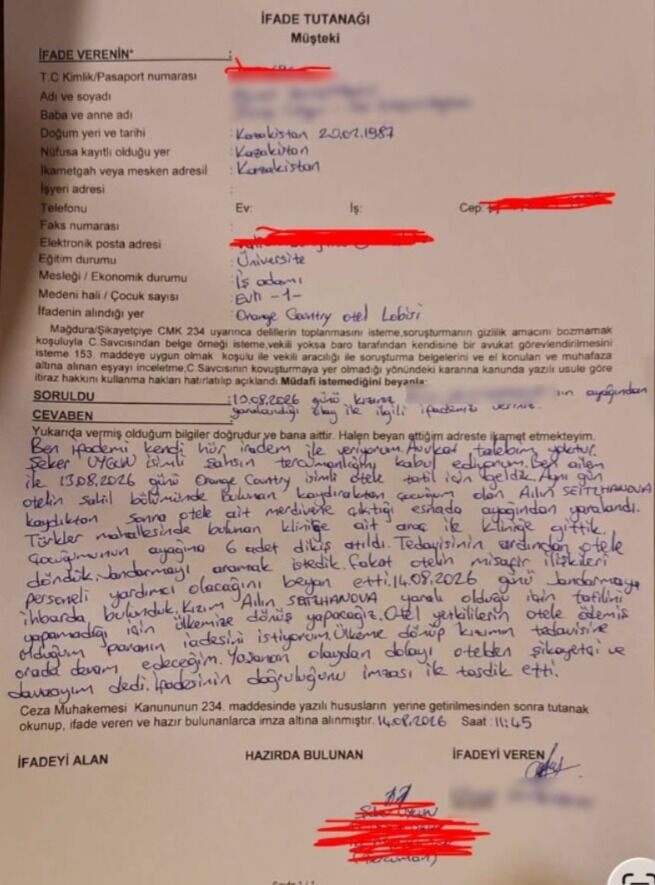 İFADE TUTANAĞI
Müşteki
İFADE VERENİN*
T.C Kimlik/Pasaport numarası
Adı ve soyadı
Baba ve anne adı
Doğum yeri ve tarihi : Kazakistan 20.02.1987
Nüfusa kayıtlı olduğu yer : Kazakistan
İkametgah veya mesken adresil : Kazakistan
İşyeri adresi :
Telefonu Ev: İş: Cep:
Faks numarası :
Elektronik posta adresi
Eğitim durumu : Üniversite
Mesleği / Ekonomik durumu : İş adamı
Medeni hali / Çocuk sayısı : Evli -1-
İfadenin alındığı yer : Orange Country otel Lobisi
Mağdura/Şikayetçiye CMK 234 uyarınca delillerin toplanmasını isteme,soruşturmanın gizlilik amacını bozmamak
koşuluyla C.Savcısından belge örneği isteme,vekili yoksa baro tarafından kendisine bir avukat görevlendirilmesini
isteme 153. maddeye uygun olmak koşulu ile vekili aracılığı ile soruşturma belgelerini ve el konulan ve muhafaza
altına alınan eşyayı inceletme,C.Savcısının kovuşturmaya yer olmadığı yönündeki kararına kanunda yazılı usule göre
itiraz hakkını kullanma hakları hatırlatılıp açıklandı. Müdafi istemediğini beyanla:
SORULDU : 13.08.2026 günü kızınız ın ayağından
yaralandığı olay ile ilgili ifadenizi veriniz.
CEVABEN
Yukarıda vermiş olduğum bilgiler doğrudur ve bana aittir. Halen beyan ettiğim adreste ikamet etmekteyim.
Ben ifademi kendi hür iradem ile veriyorum. Avukat talebim yoktur.
Şeker UYGUN isimli şahsın tercümanlığını kabul ediyorum. Ben ailem
ile 13.08.2026 günü Orange Country isimli otele tatil için geldik. Aynı gün
otelin sahil bölümünde bulunan kaydıraktan çocuğum olan Ailin SEITZHANOVA
kaydıktan sonra otele ait merdivene çıktığı esnada ayağından yaralandı.
Türkler mahallesinde bulunan kliniğe ait araç ile kliniğe gittik.
Çocuğumunun ayağına 6 adet dikiş atıldı. Tedavisinin ardından otele
döndük. Jandarmayı aramak istedik. Fakat otelin misafir ilişkileri
personeli yardımcı olacağını beyan etti. 14.08.2026 günü Jandarmaya
ihbarda bulunduk. Kızım Ailin SEITZHANOVA yaralı olduğu için tatilini
yapamadığı için ülkemize dönüş yapacağız. Otel yetkililerin otele ödemiş
olduğum paranın iadesini istiyorum. Ülkeme dönüp kızımın tedavisine
orada devam edeceğim. Yaşanan olaydan dolayı otelden şikayetçi ve
davacıyım dedi. İfadesinin doğruluğunu imzası ile tasdik etti.
Ceza Muhakemesi Kanununun 234. maddesinde yazılı hususların yerine getirilmesinden sonra tutanak
okunup, ifade veren ve hazır bulunanlarca imza altına alınmıştır. 14.08.2026 Saat : 11:45
İFADEYİ ALAN HAZIRDA BULUNAN İFADEYİ VEREN